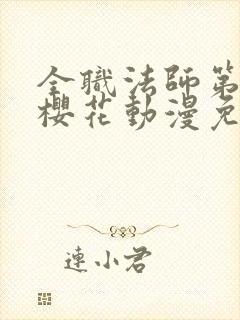 全職法師第
櫻花動漫免
連小君